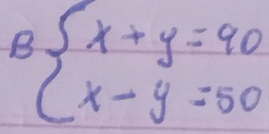 B { x + y = 90
x - y = 50